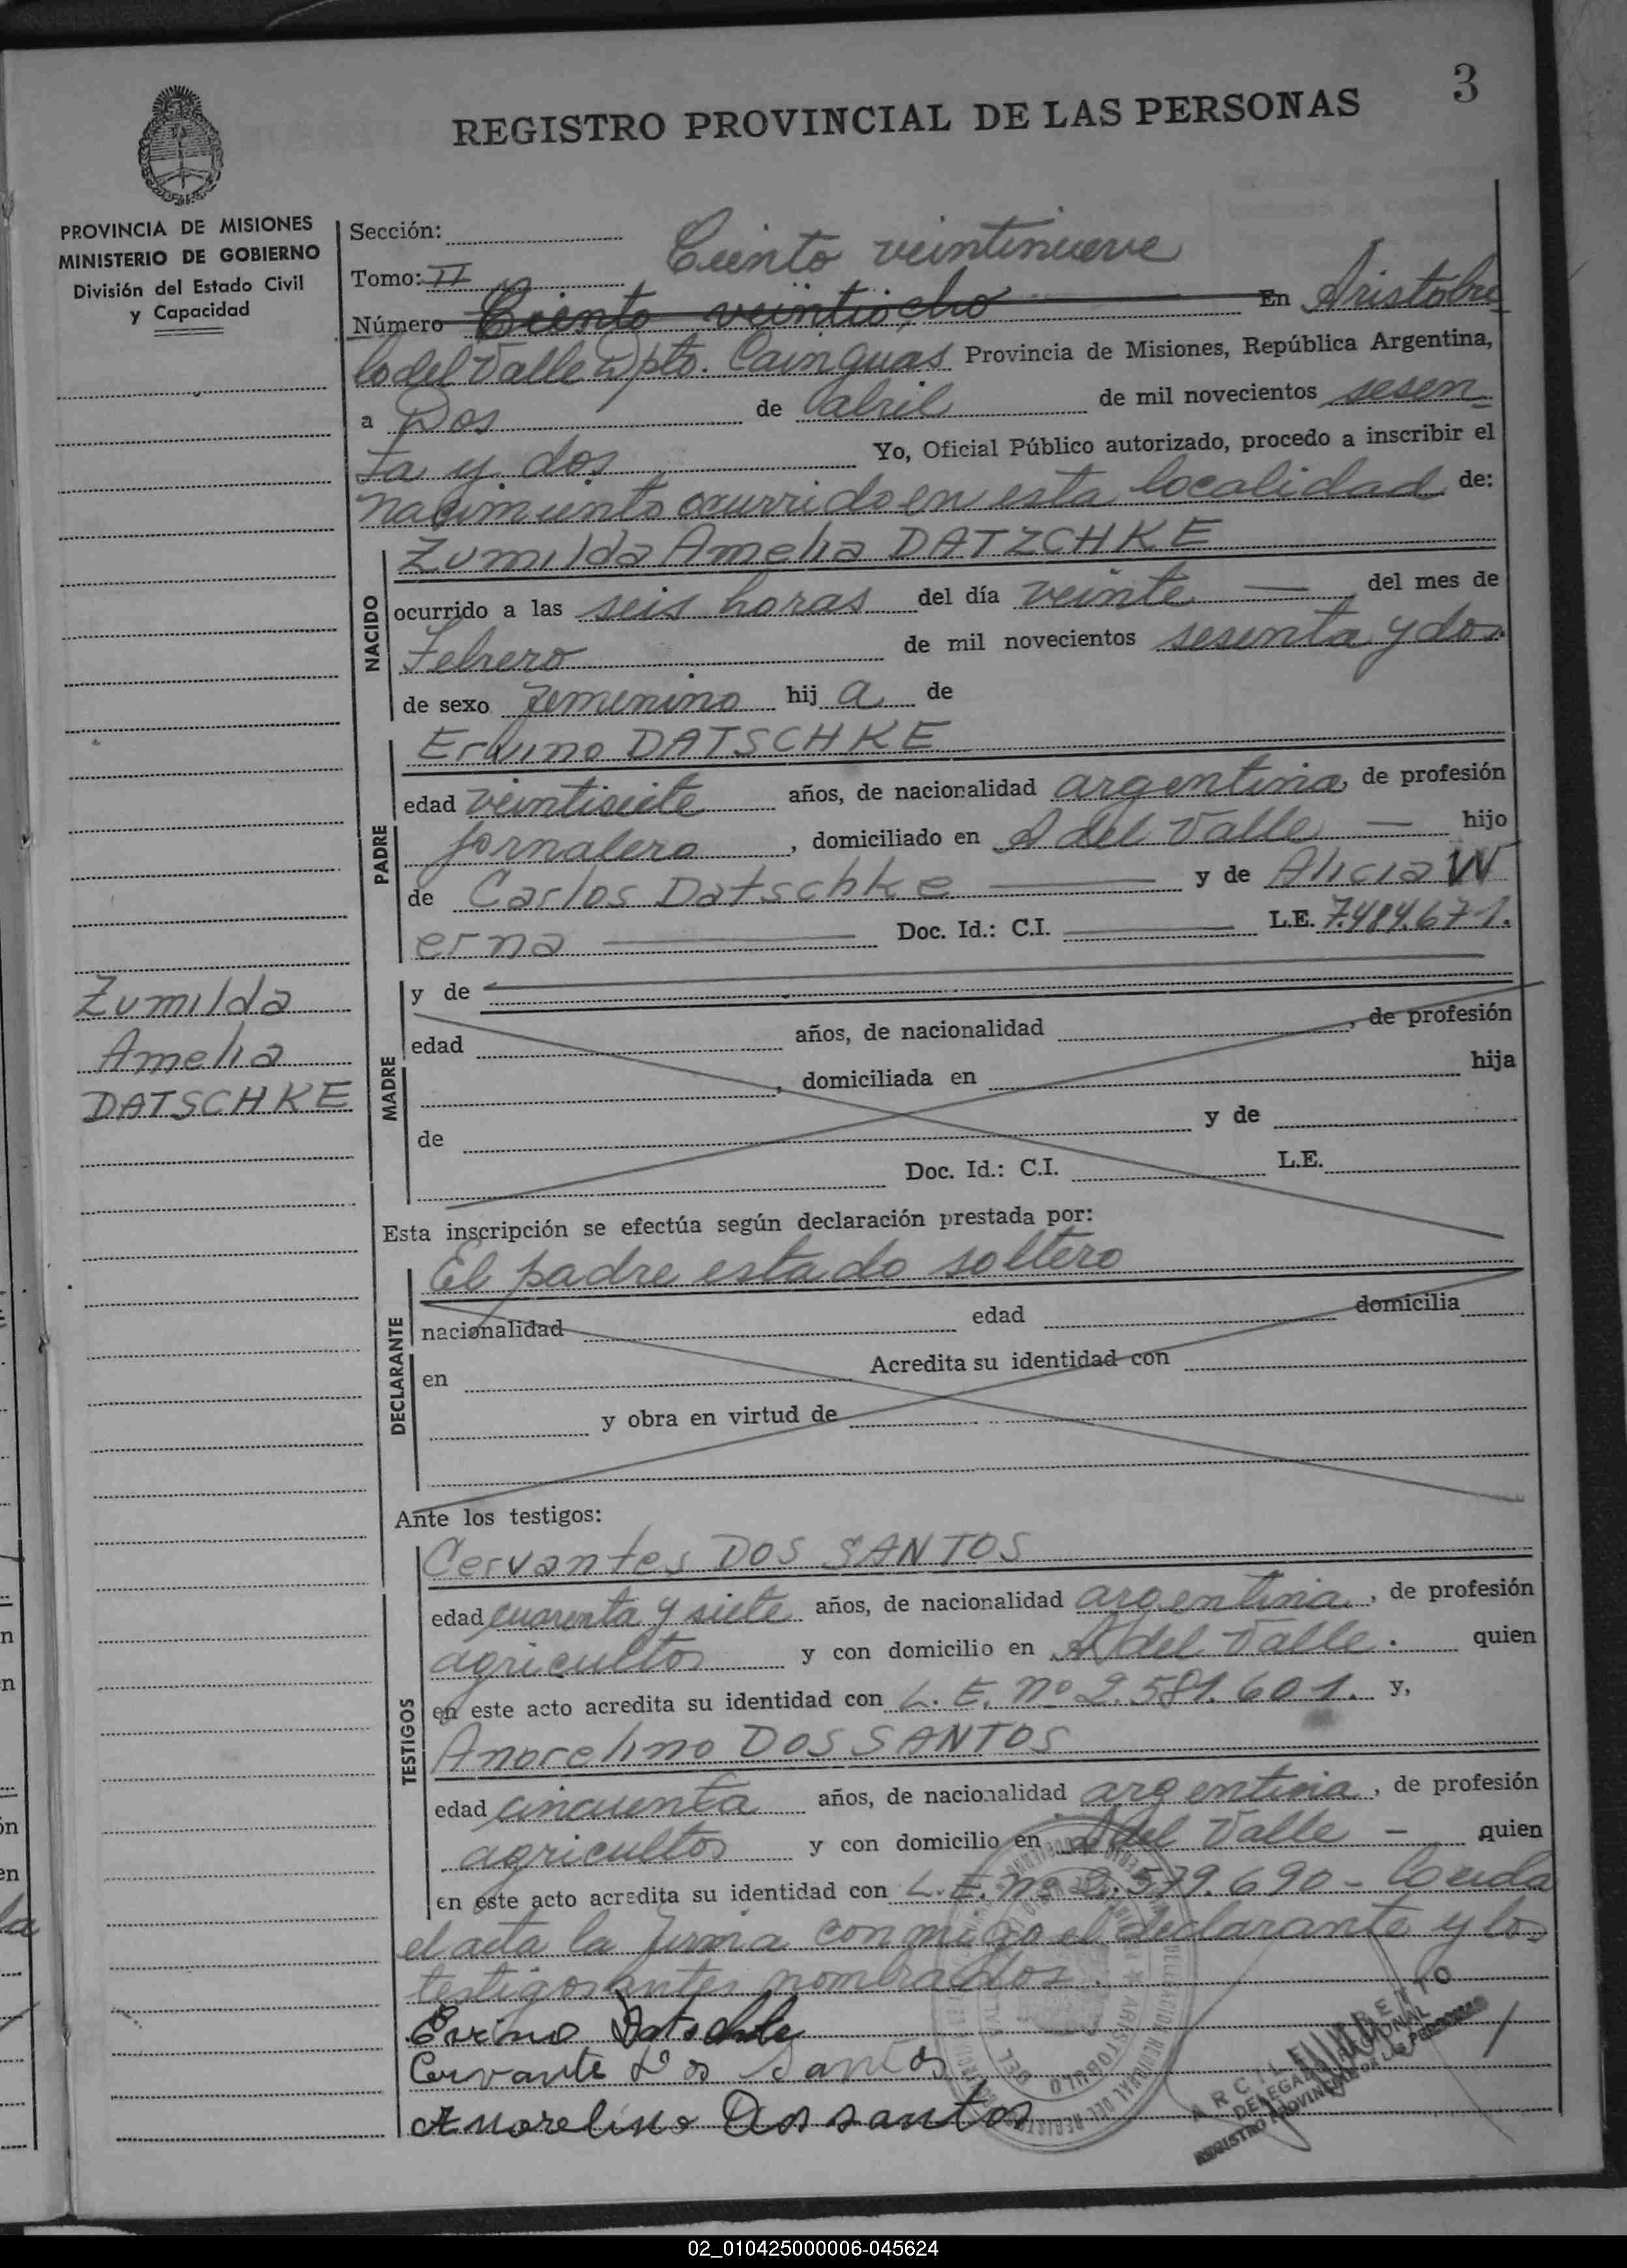 3
REGISTRO PROVINCIAL DE LAS PERSONAS
PROVINCIA DE MISIONES
MINISTERIO DE GOBIERNO
División del Estado Civil
y Capacidad
Sección:
Ciento veintinueve
Tomo: II
Número Ciento veintiocho En Aristobu
lo del Valle Dpto. Cainguas Provincia de Misiones, República Argentina,
a Dos de abril de mil novecientos sesen
ta y dos Yo, Oficial Público autorizado, procedo a inscribir el
nacimiento ocurrido en esta localidad de:
NACIDO
Zumilda Amelia DATZCHKE
ocurrido a las seis horas del día veinte del mes de
Febrero de mil novecientos sesenta y dos
de sexo femenino hij a de
PADRE
Ervino DATSCHKE
edad veintisiete años, de nacionalidad argentina, de profesión
jornalero, domiciliado en A del Valle — hijo
de Carlos Datschke y de Alicia W
erna Doc. Id.: C.I. L.E. 7.484.671.
Zumilda
Amelia
DATSCHKE
MADRE
y de
edad años, de nacionalidad , de profesión
, domiciliada en hija
de y de
Doc. Id.: C.I. L.E.
Esta inscripción se efectúa según declaración prestada por:
DECLARANTE
El padre estado soltero
nacionalidad edad domicilia
en Acredita su identidad con
y obra en virtud de
Ante los testigos:
TESTIGOS
Cervantes DOS SANTOS
edad cuarenta y siete años, de nacionalidad argentina, de profesión
agricultor y con domicilio en A del Valle. quien
en este acto acredita su identidad con L. E. nº 2.581.601. y,
Anorelino DOS SANTOS
edad cincuenta años, de nacionalidad argentina, de profesión
agricultor y con domicilio en A del Valle — quien
en este acto acredita su identidad con L. E. nº 2.579.690 -
el acta la firma conmigo el declarante y los
testigos antes nombrados.
Ervino Datschke
Cervante Dos Santos
Anorelino Dos santos
DELEGADO REGIONAL
REGISTRO PROVINCIAL DE LAS PERSONAS
02_010425000006-045624